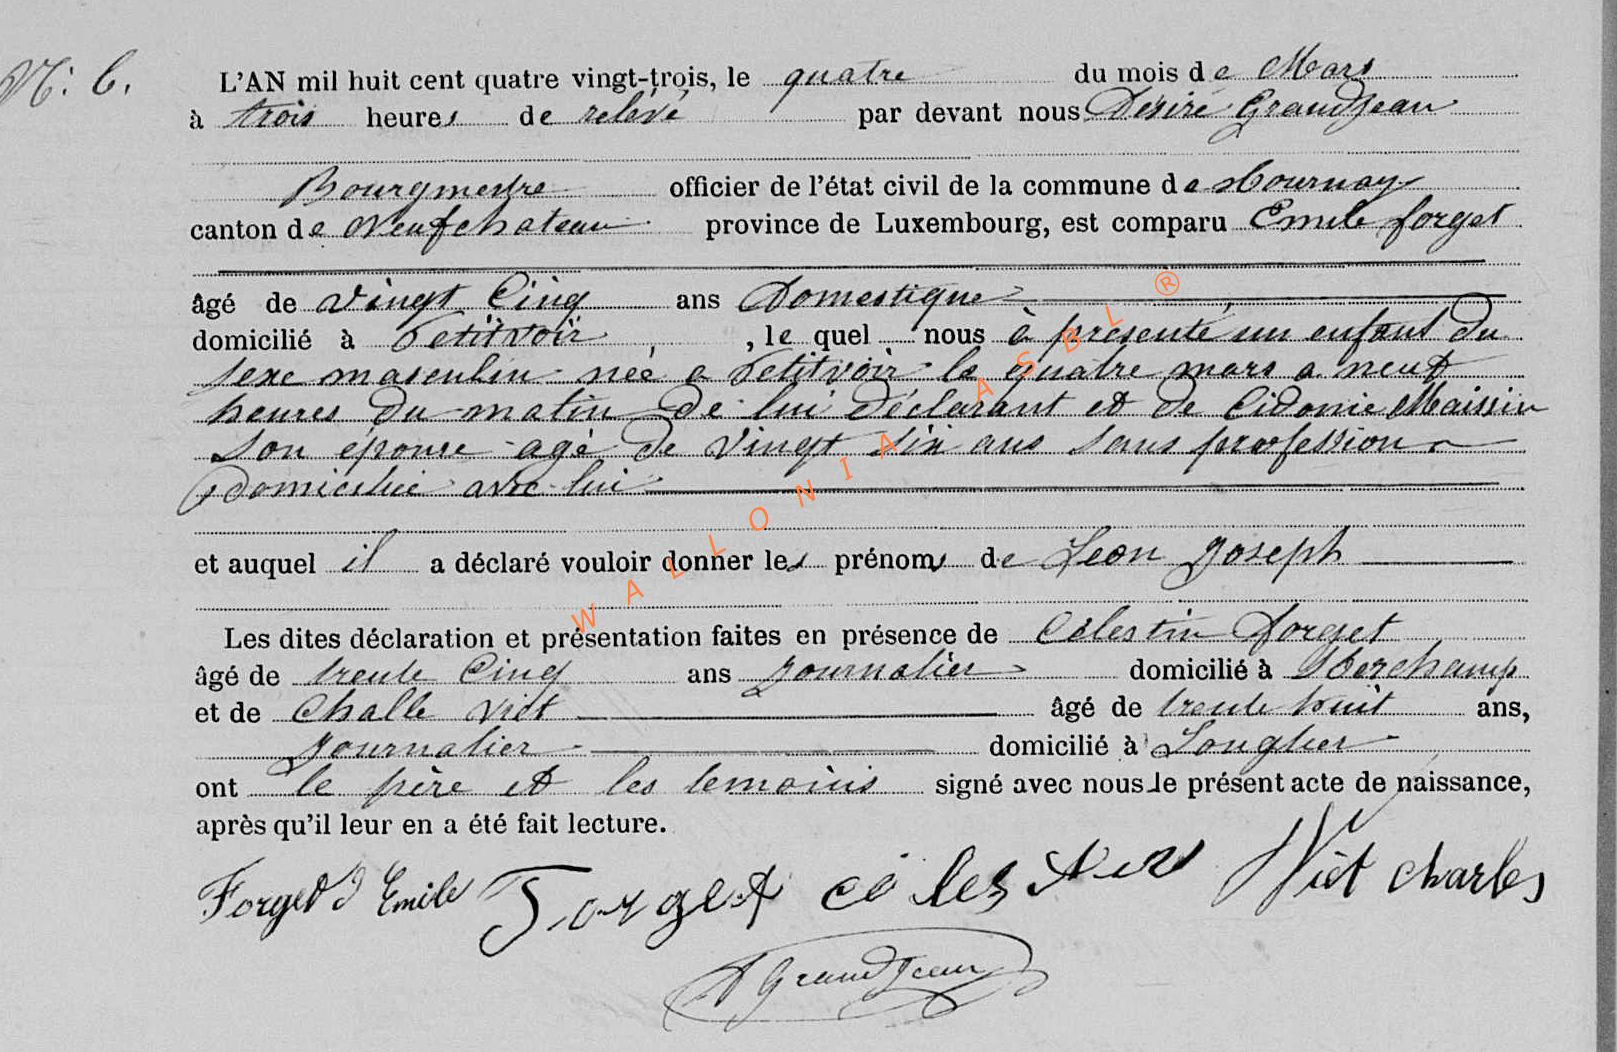 N: 6.
L'AN mil huit cent quatre vingt-trois, le quatre du mois de Mars
à trois heures de relévé par devant nous Désiré Grandjean
Bourgmestre officier de l'état civil de la commune de Tournay
canton de Neufchateau province de Luxembourg, est comparu Emile forget
âgé de vingt Cinq ans Domestique
domicilié à Petitvoir, le quel nous à présenté un enfant du
sexe masculin née a Petitvoir le quatre mars a neuf
heures du matin de lui déclarant et de Cidonie Maissin
son épouse agé de vingt six ans sans profession
domiciliée avec lui
et auquel il a déclaré vouloir donner les prénoms de Leon Joseph
Les dites déclaration et présentation faites en présence de Célestin Forget
âgé de trente Cinq ans Journalier domicilié à Offerchamp
et de Challe Viet âgé de trente huit ans,
Journalier domicilié à Longlier
ont le père et les temoins signé avec nous le présent acte de naissance,
après qu'il leur en a été fait lecture.
Forget Emile Forget célestin Viet charles
D Grandjean
WALLONIA ASBL ®